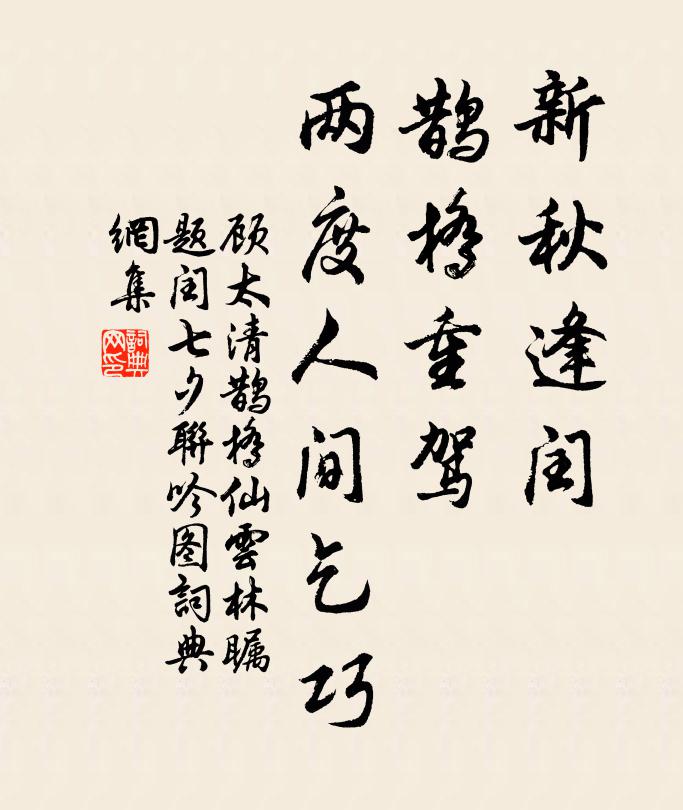 新秋逢闰
鹊桥重驾
两度人间乞巧
顾太清鹊桥仙雲林瞩
题闰七夕聨吟图詞典
網集
詞典
网印